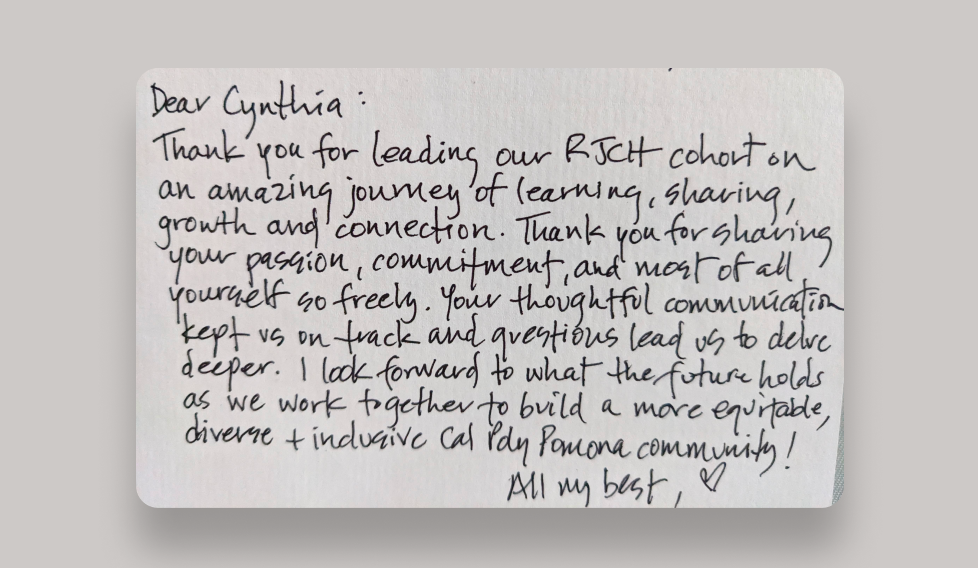 Dear Cynthia:
Thank you for leading our RJCH cohort on
an amazing journey of learning, sharing,
growth and connection. Thank you for sharing
your passion, commitment, and most of all
yourself so freely. Your thoughtful communication
kept us on track and questions lead us to delve
deeper. I look forward to what the future holds
as we work together to build a more equitable,
diverse + inclusive Cal Poly Pomona community!
All my best, ♡